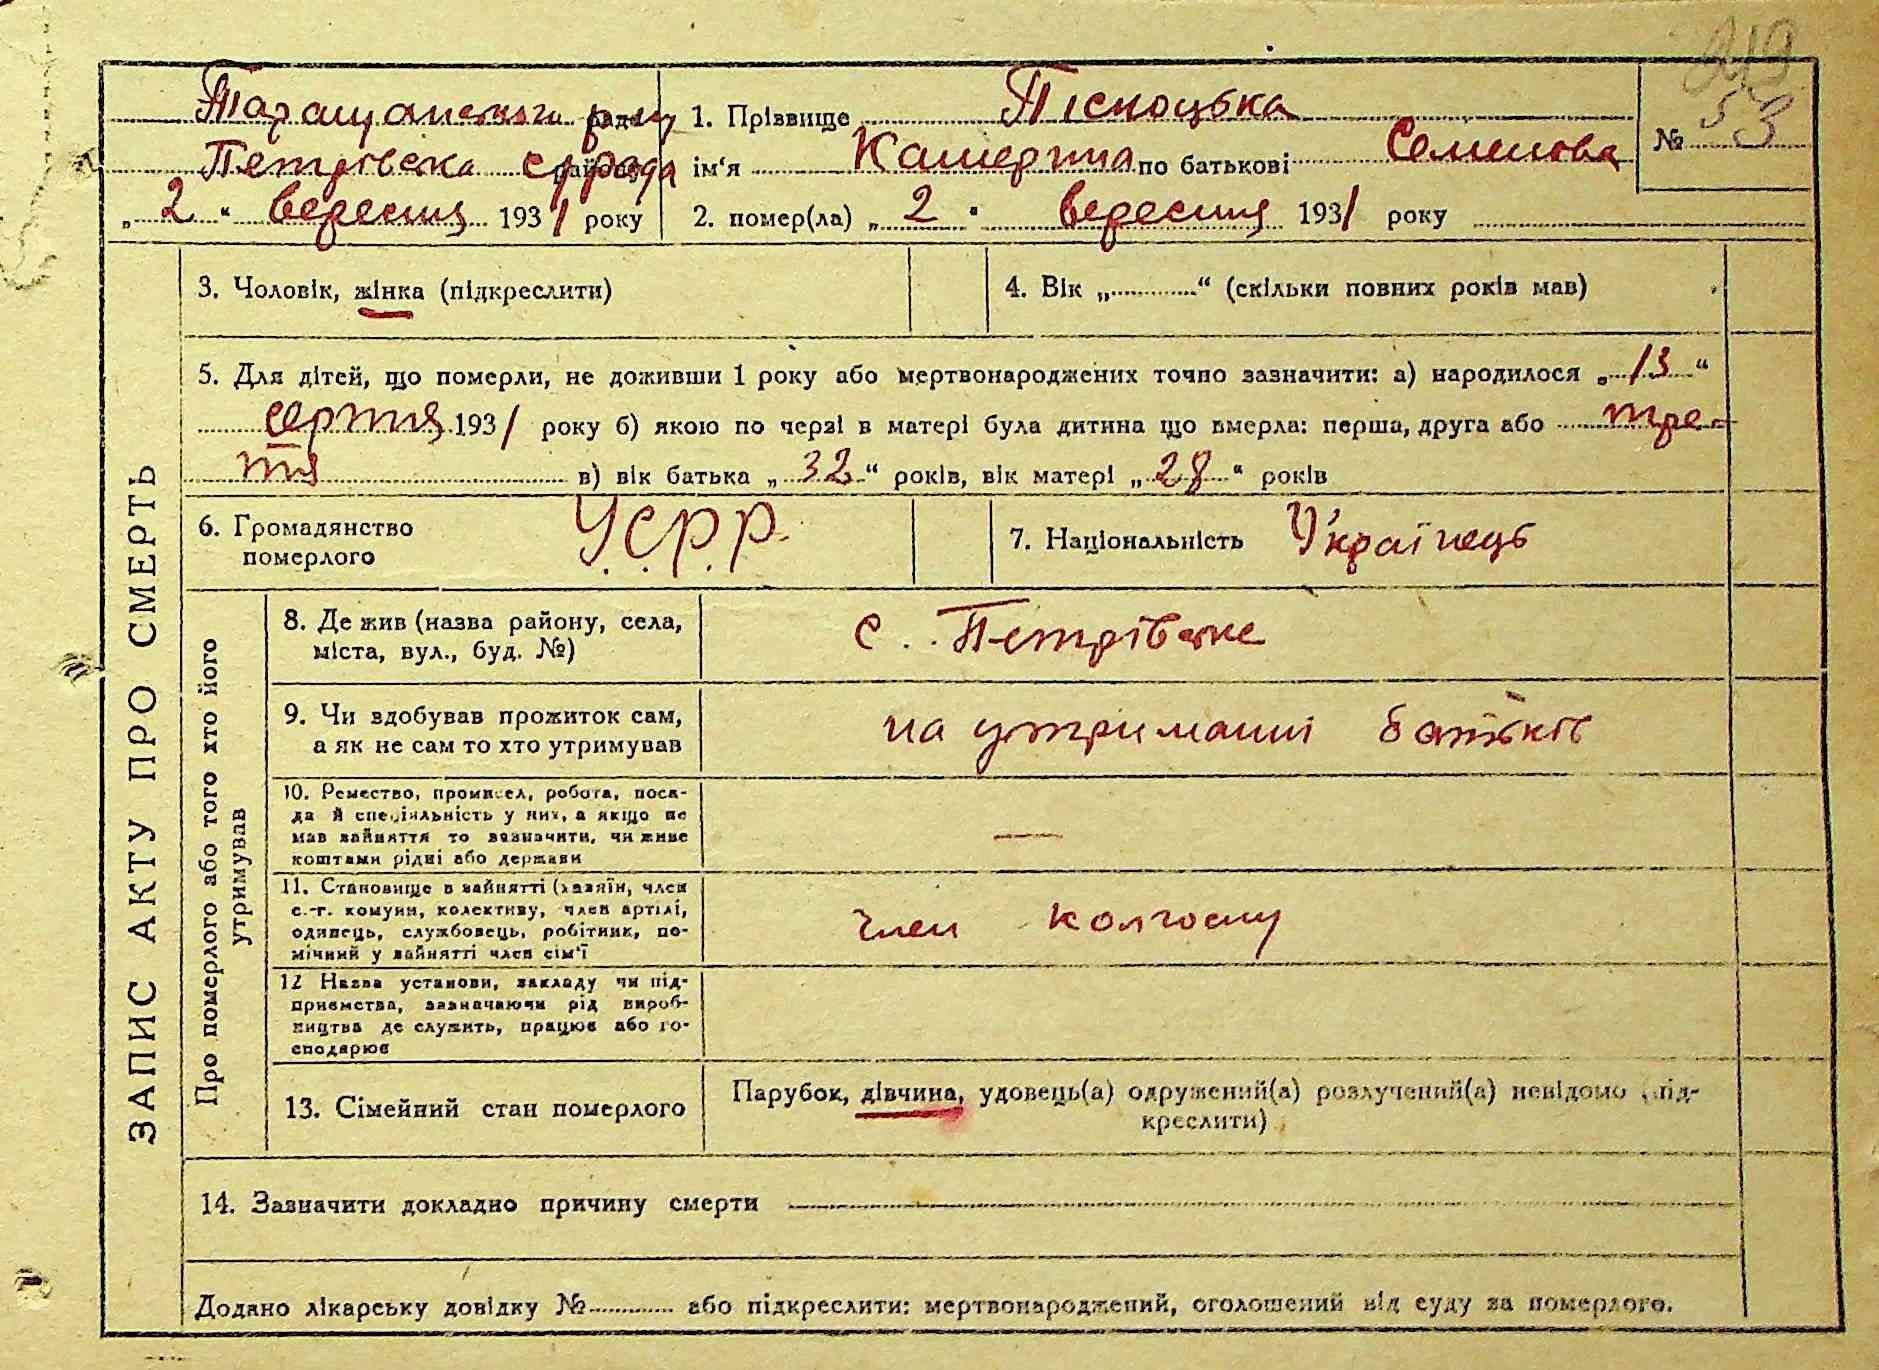 219
Таращанського р-ну ради 1. Прізвище Піскоцька № 53
Петрівська с/рада району ім'я Катерина по батькові Семенова
„ 2 “ вересня 1931 року 2. помер(ла) „ 2 “ вересня 1931 року
3. Чоловік, жінка (підкреслити) 4. Вік „ “ (скільки повних років мав)
5. Для дітей, що померли, не доживши 1 року або мертвонароджених точно зазначити: а) народилося „ 13 “
серпня 1931 року б) якою по черзі в матері була дитина що вмерла: перша, друга або тре-
тя в) вік батька „ 32 “ років, вік матері „ 28 “ років
6. Громадянство
померлого У.С.Р.Р. 7. Національність Українець
ЗАПИС АКТУ ПРО СМЕРТЬ
Про померлого або того хто його
утримував
8. Де жив (назва району, села,
міста, вул., буд. №) с. Петрівське
9. Чи здобував прожиток сам,
а як не сам то хто утримував на утриманні батьків
10. Ремество, промисел, робота, поса-
да й спеціяльність у них, а якщо не
мав зайняття то зазначити, чи живе
коштами рідні або держави —
11. Становище в зайнятті (хазяїн, член
с.-г. комуни, колективу, член артілі,
одинець, службовець, робітник, по-
мічний у зайнятті член сім'ї член колгоспу
12 Назва установи, закладу чи під-
приємства, зазначаючи рід вироб-
ництва де служить, працює або го-
сподарює
13. Сімейний стан померлого Парубок, дівчина, удовець(а) одружений(а) розлучений(а) невідомо (під-
креслити)
14. Зазначити докладно причину смерти
Додано лікарську довідку № або підкреслити: мертвонароджений, оголошений від суду за померлого.